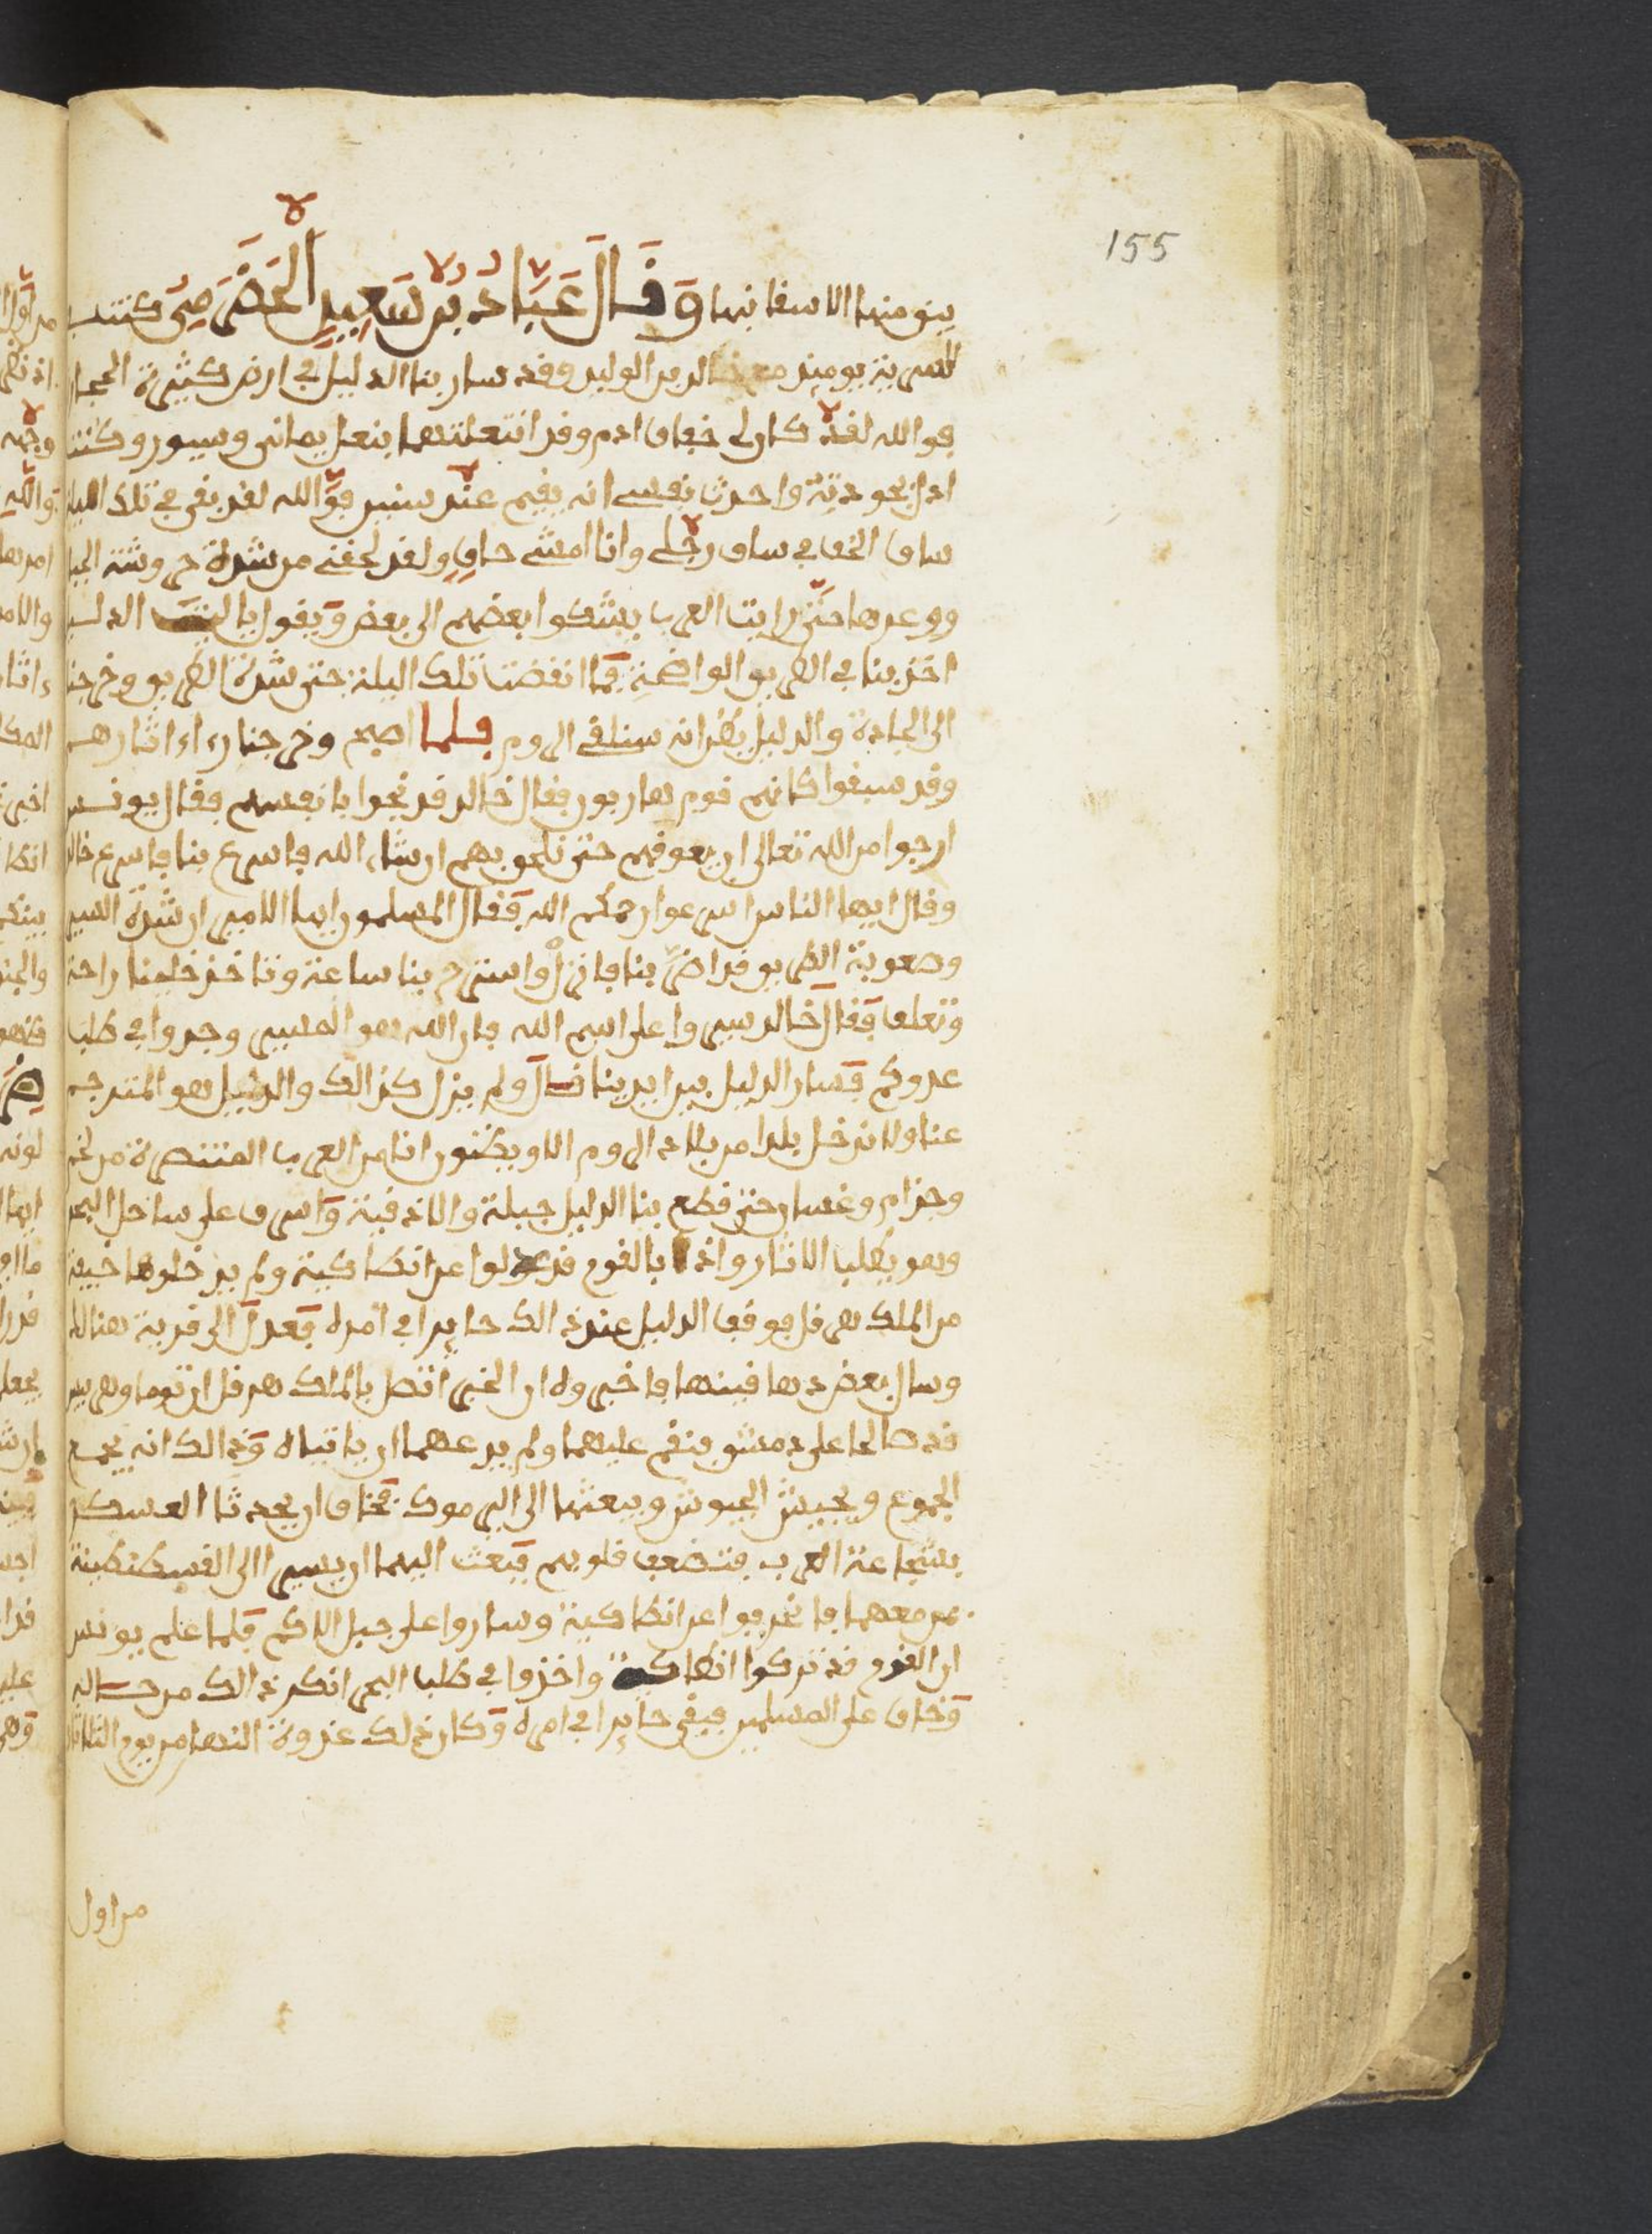 155
يبق منها الا سقانها وقال عباد بن سعيد الحضرمي كنت
السرية يومئذ مع خالد بن الوليد وقد سار بنا الدليل في ارض كثيرة الحجار
فوالله لقد كان لي خفاف ادم وقد انتعلتهما بنعل يماني وسيور وكنت
ادل بجودته واحدث نفسي انه يقيم عند سنين فوالله لقد بقي في تلك الليلة
ساق الخف في ساق رجلي وانا امشي حاف ولقد لحقني من شدة حروشة الجبا
ووعرها حتى رايت العرب يشكوا بعضهم الى بعض ويقول يا ليت الدليل
اخذ بنا في الطريق الواضحة فما انقضت تلك اليلة حتى شدة الطريق وخرجنا
الى الجادة والدليل يظن انه سنلقي الروم فلما اصبح وخرجنا راء اثارهم
وقد سبقوا كانهم قوم هاربون فقال خالد قد نجوا بانفسهم فقال يونس
ارجوا من الله تعالى ان يعوقهم حتى نلحق بهم ان شاء الله فاسرع بنا فاسرع خالد
وقال ايها الناس اسرعوا رحمكم الله فقال المسلمون ايها الامير ان شدة السير
وصعوبة الطريق قد اضر بنا فانزل واسترح بنا ساعة وتاخذ خيلنا راحة
وتعلف فقال خالد سيروا على اسم الله فان الله هو المسير وجدوا في طلب
عدوكم فسار الدليل بين ايدينا قال ولم يزل كذالك والدليل هو المترجم
عنا ولا ندخل بلدا من بلاد الروم الا ويظنون انا من العرب المتنصرة من لخم
وجذام وغسان حتى قطع بنا الدليل جبلة والاذقية واسرف على ساحل البحر
وهو يطلب الاثار واذا بالقوم قد عدلوا عن انطاكية ولم يدخلوها خيفة
من الملك هرقل فوقف الدليل عند ذالك حايرا في امره فعدل الى قرية هنالك
وسال بعض دهاقينها فاخبروه ان الخبر اتصل بالملك هرقل ان توما وهربيس
قد صالحا على دمشق فنقم عليهما ولم يدعهما ان ياتياه وذالك انه يجمع
الجموع ويجيش الجيوش ويبعثها الى اليرموك فخاف ان يحدثا العسكر
بشجاعة العرب فتضعف قلوبهم فبعث اليهما ان يسيرا الى القسطنطينة
بمن معهما فانحرفوا عن انطاكية وساروا على جبل اللاكم فلما علم يونس
ان القوم قد تركوا انطاكية واخذوا في طلب البحر انكر ذالك من حاله
وخاف على المسلمين فبقي حايرا في امره وكان ذلك غدوة النهار من يوم الثلاثاء
من اول